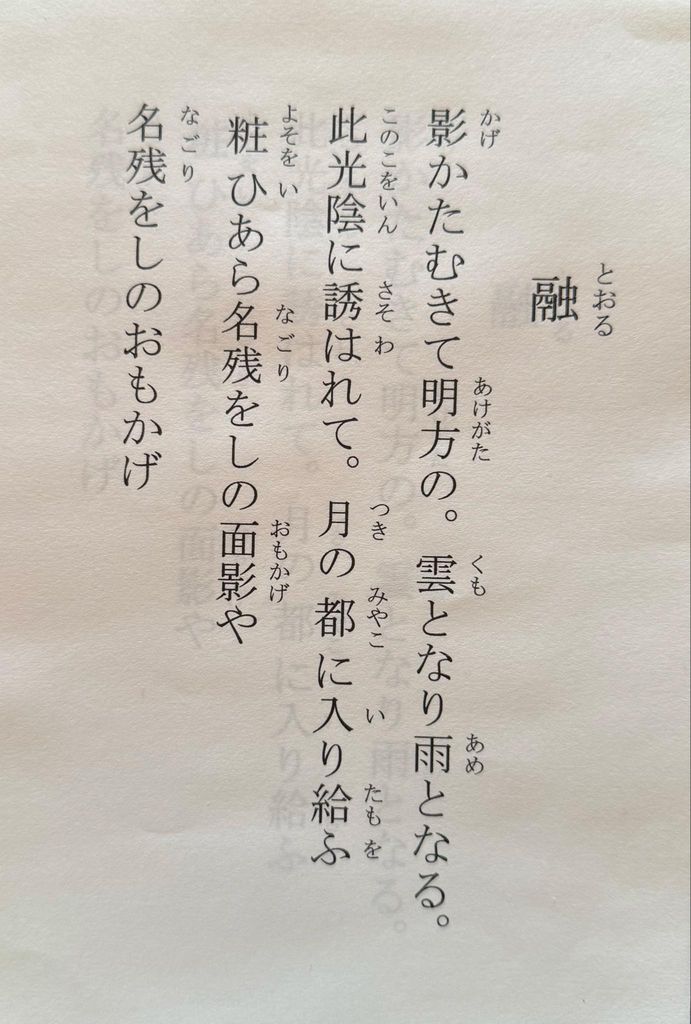 融
とおる
影かたむきて明方の。雲となり雨となる。
かげ あけがた くも あめ
此光陰に誘はれて。月の都に入り給ふ
このこをいん さそ わ つき みやこ い たも を
粧ひあら名残をしの面影や
よそを い なごり おもかげ
名残をしのおもかげ
なごり